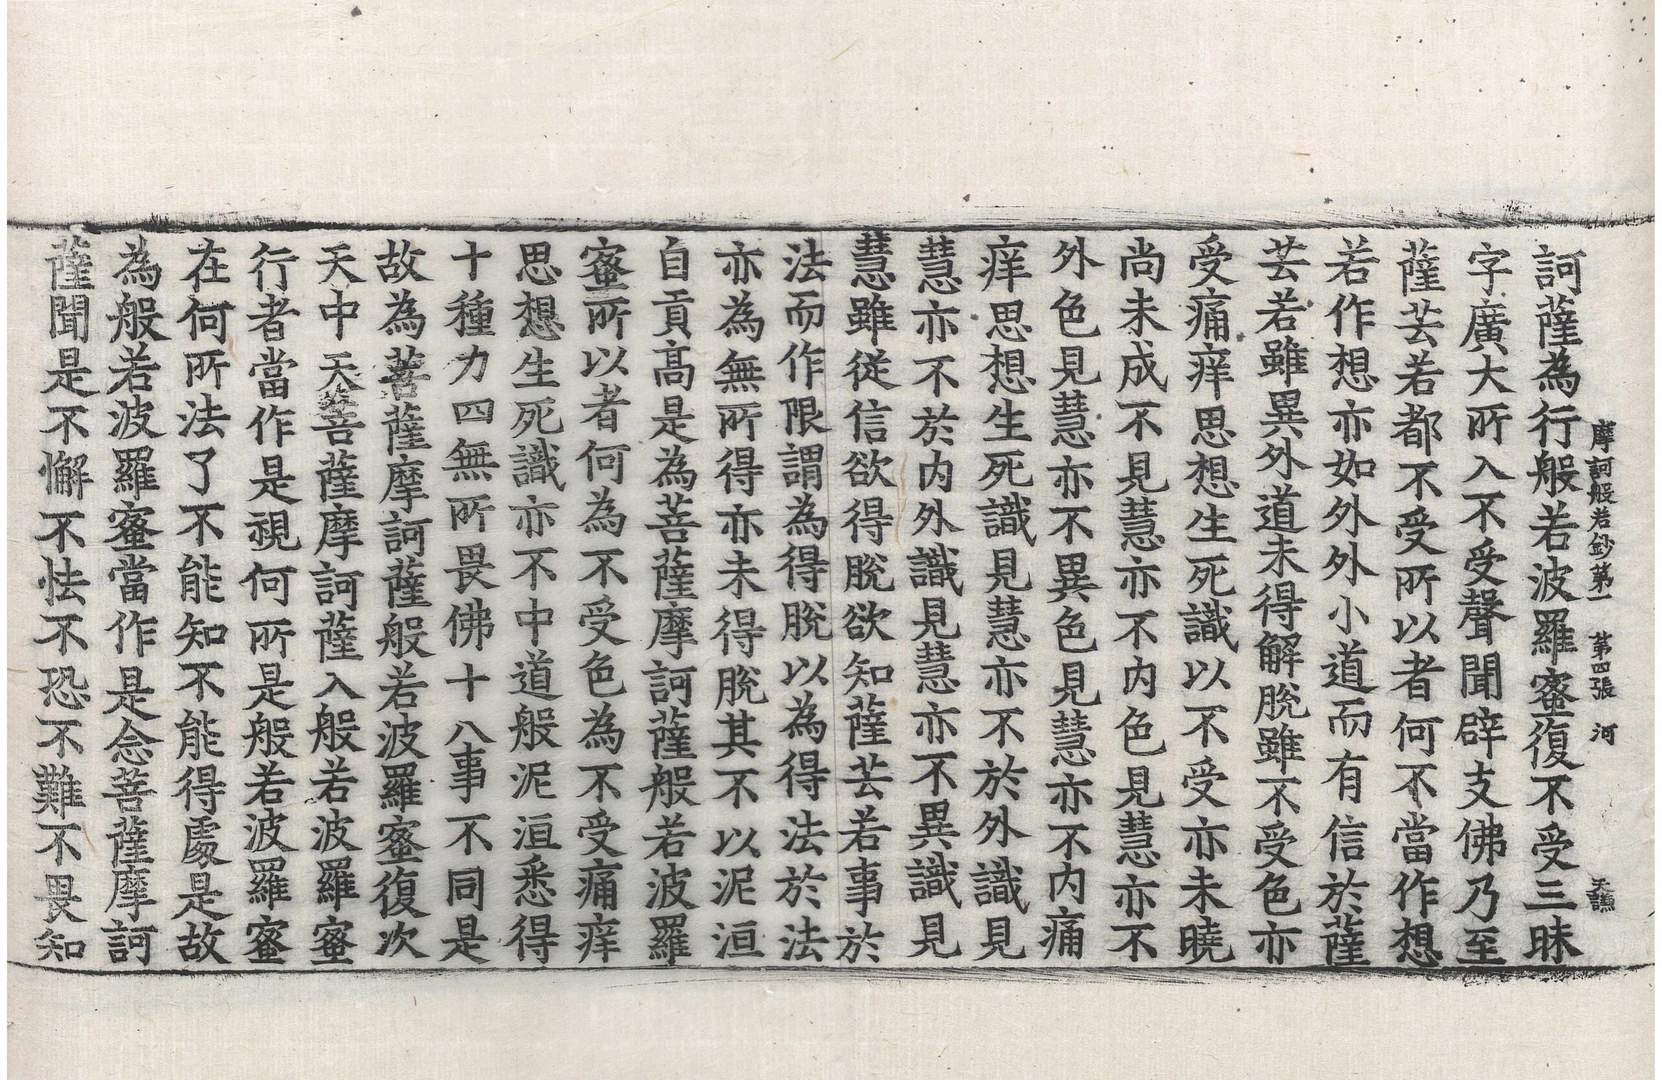 摩訶般若鈔第一 第四張 河 天譙
訶薩為行般若波羅蜜復不受三昧
字廣大所入不受聲聞辟支佛乃至
薩芸若都不受所以者何不當作想
若作想亦如外外小道而有信於薩
芸若雖異外道未得解脫雖不受色亦
受痛痒思想生死識以不受亦未曉
尚未成不見慧亦不內色見慧亦不
外色見慧亦不異色見慧亦不內痛
痒思想生死識見慧亦不於外識見
慧亦不於內外識見慧亦不異識見
慧雖從信欲得脫欲知薩芸若事於
法而作限謂為得脫以為得法於法
亦為無所得亦未得脫其不以泥洹
自貢高是為菩薩摩訶薩般若波羅
蜜所以者何為不受色為不受痛痒
思想生死識亦不中道般泥洹悉得
十種力四無所畏佛十八事不同是
故為菩薩摩訶薩般若波羅蜜復次
天中天菩薩摩訶薩入般若波羅蜜
行者當作是視何所是般若波羅蜜
在何所法了不能知不能得處是故
為般若波羅蜜當作是念菩薩摩訶
薩聞是不懈不怯不恐不難不畏知